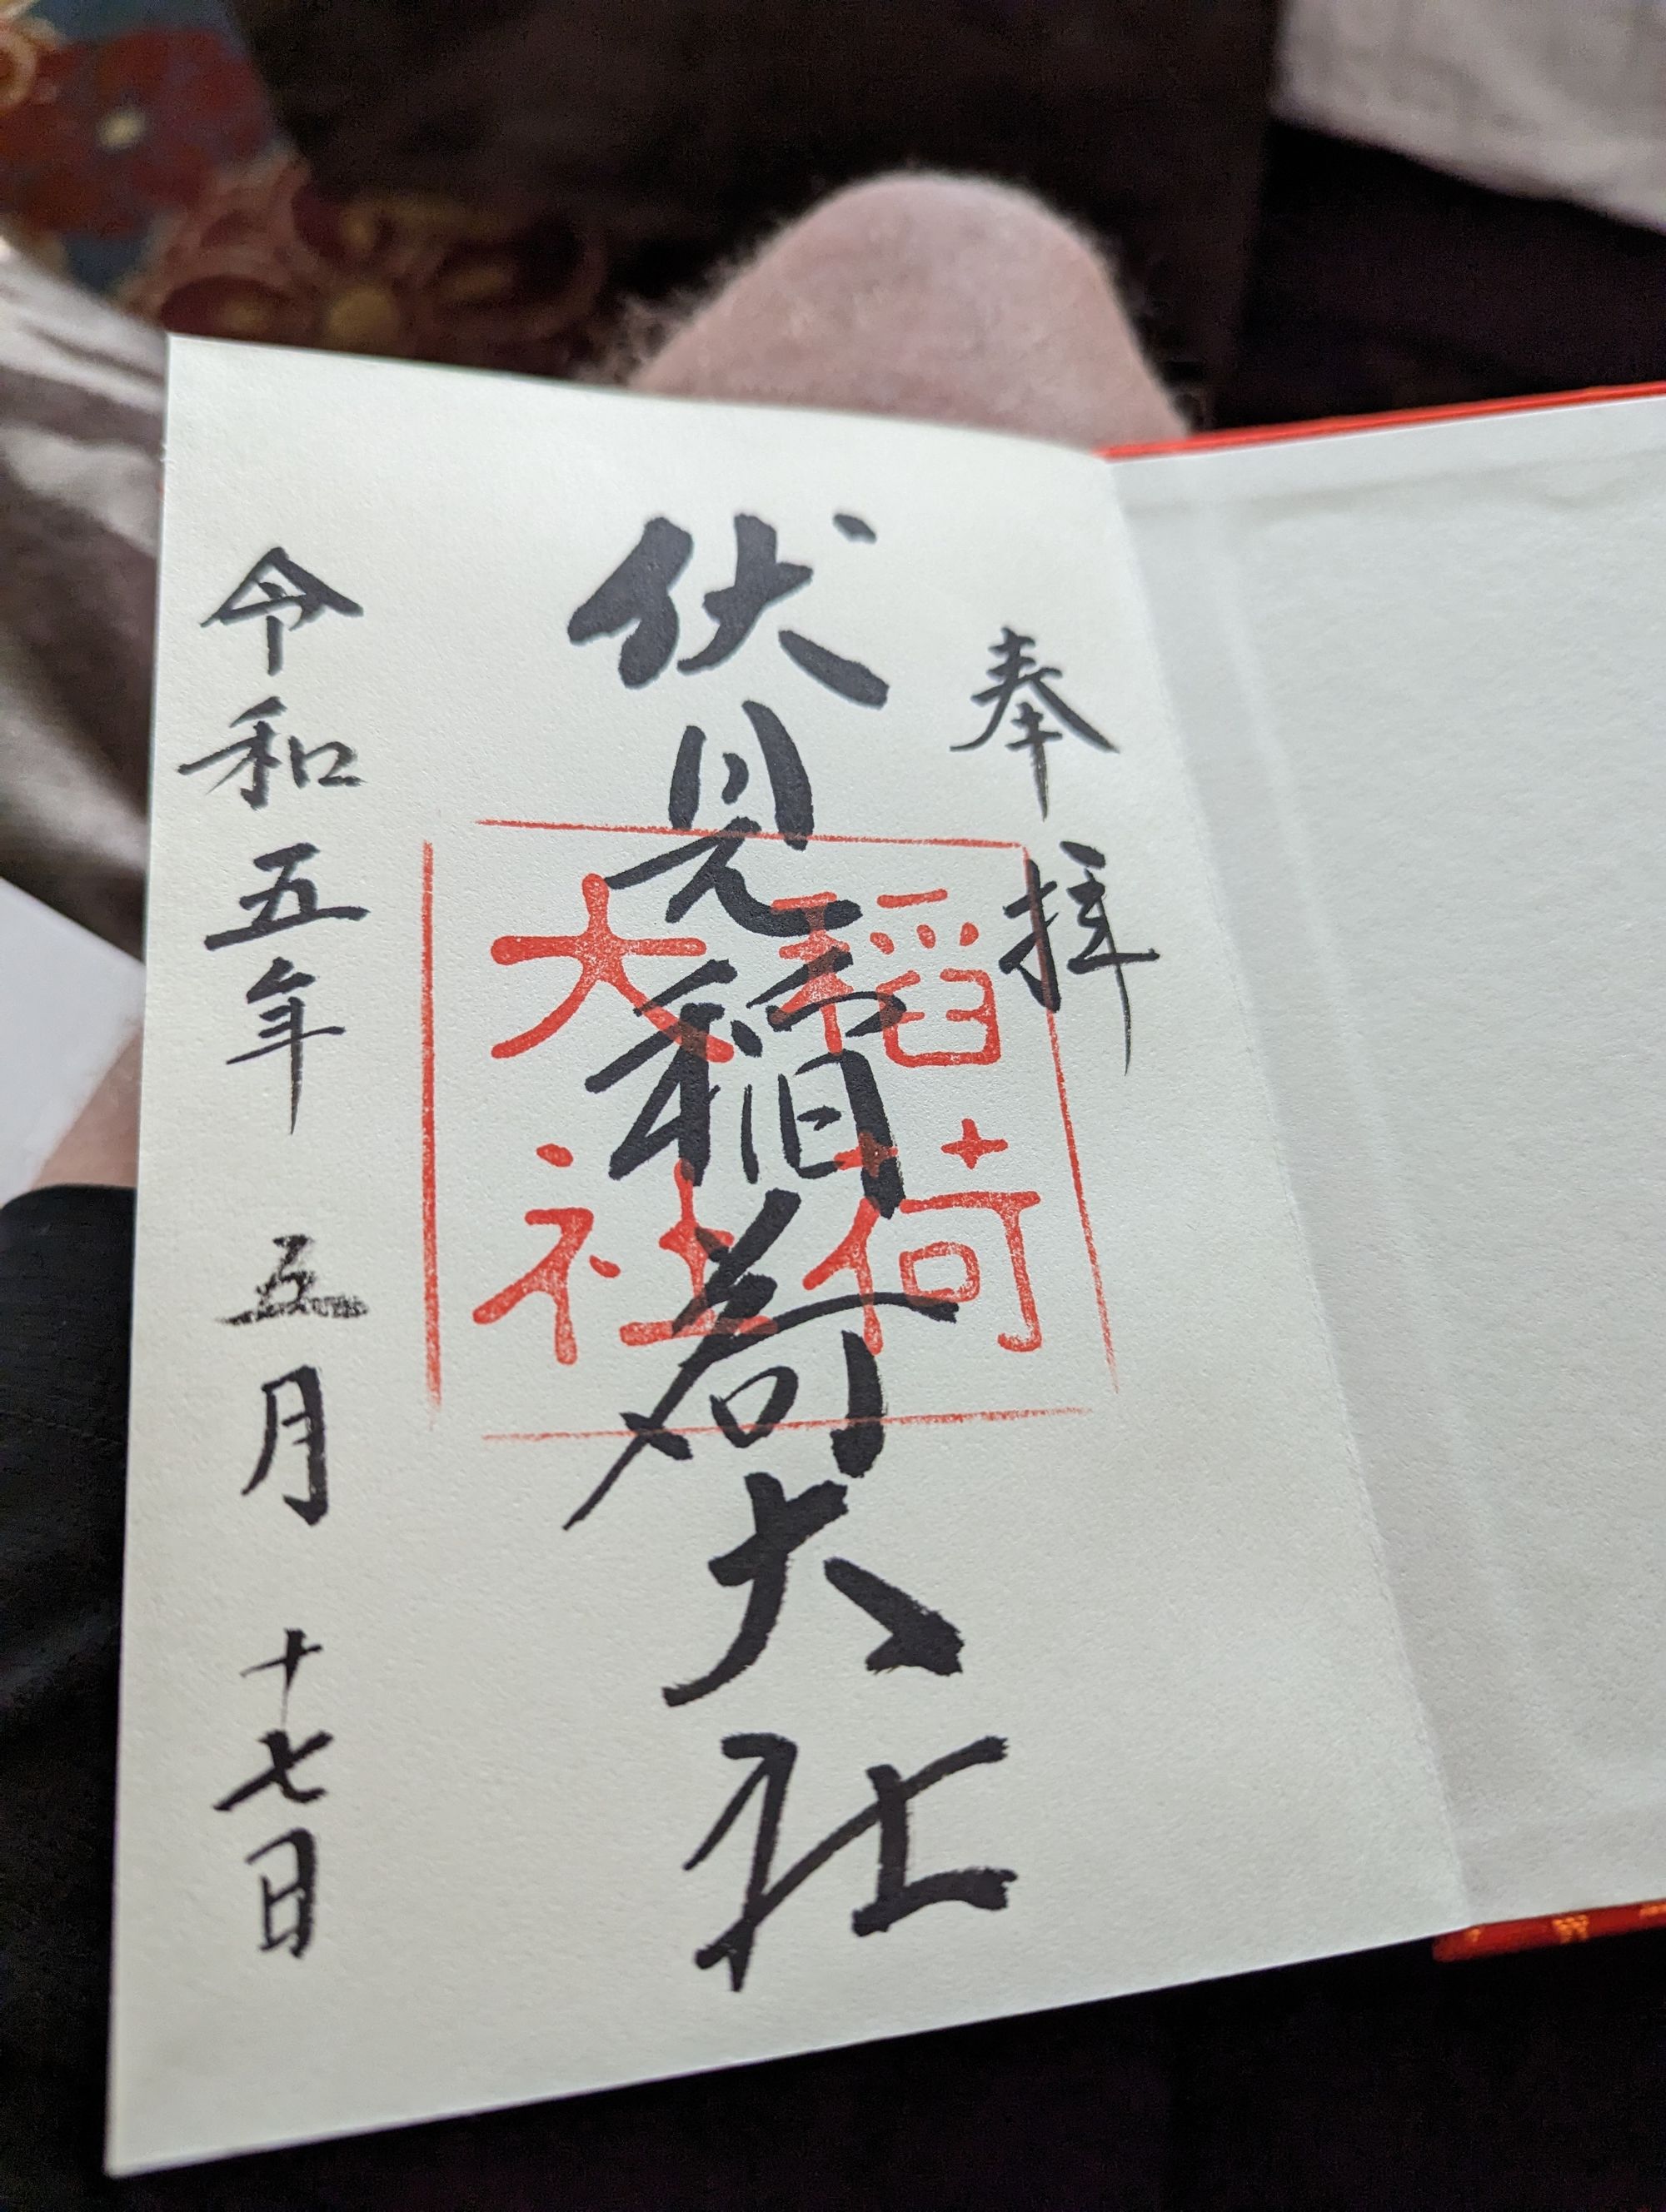 奉拝
伏見稲荷大社
稲荷
大社
令和五年 五月 十七日